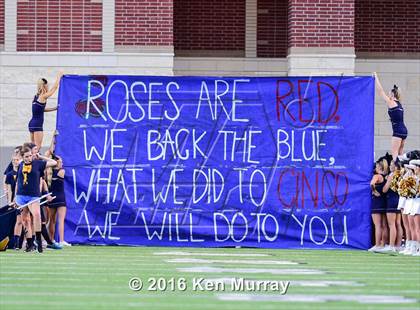 ROSES ARE RED.
WE BACK THE BLUE,
WHAT WE DID TO CINCO
WE WILL DO TO YOU
© 2016 Ken Murray